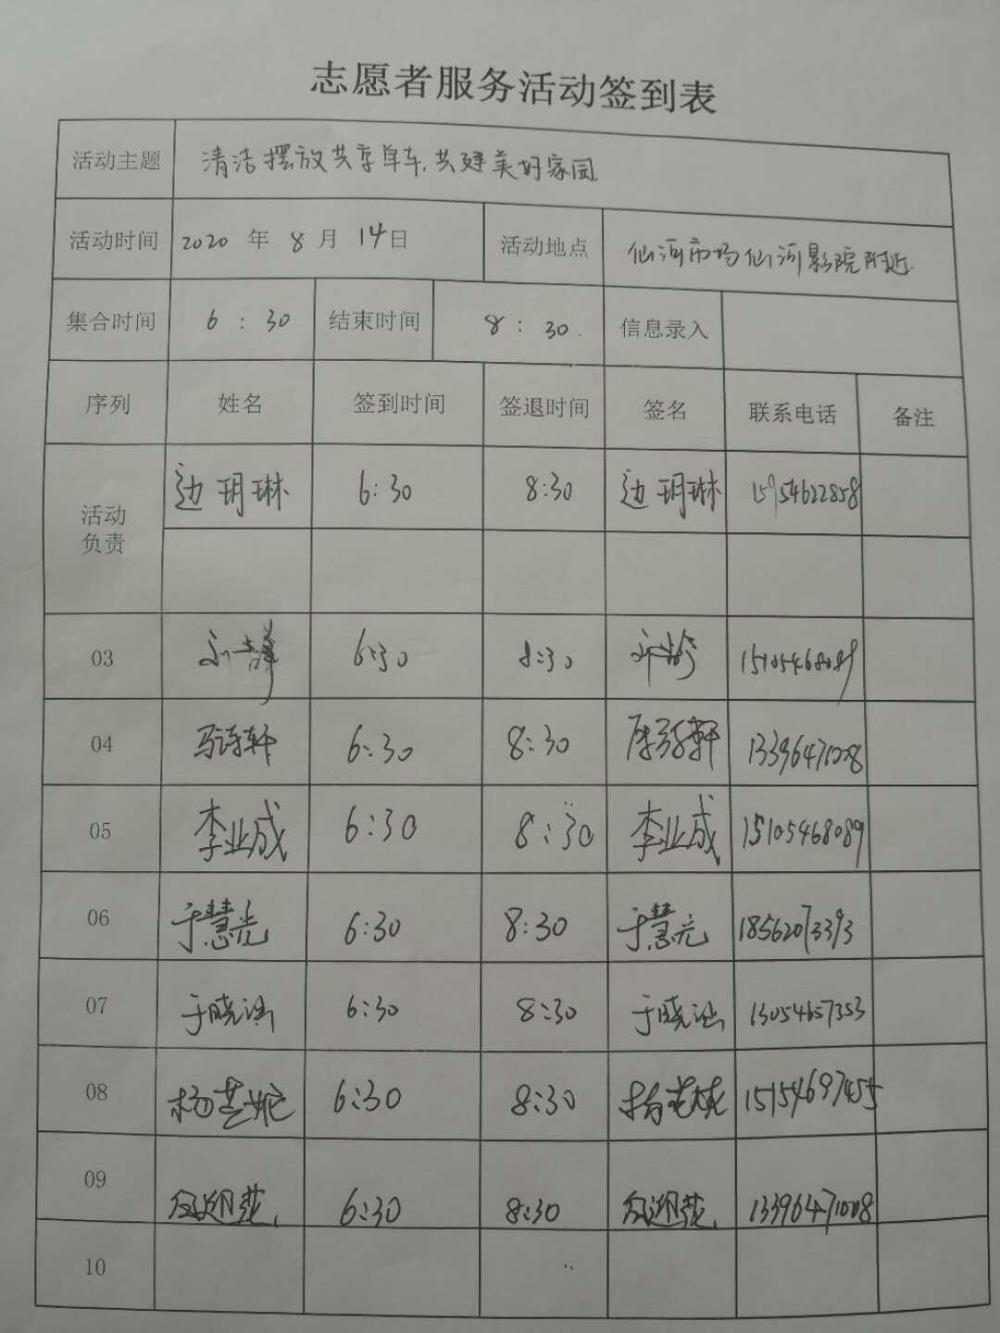 志愿者服务活动签到表
活动主题 清洁摆放共享单车,共建美好家园
活动时间 2020 年 8 月 14日 活动地点 仙河市场仙河影院附近
集合时间 6 : 30 结束时间 8 : 30 信息录入
序列 姓名 签到时间 签退时间 签名 联系电话 备注
活动负责 边玥琳 6:30 8:30 边玥琳 15954622858
03 6:30 8:30 15105468089
04 马诗轩 6:30 8:30 13396471008
05 李业成 6:30 8:30 李业成 15105468089
06 于慧光 6:30 8:30 于慧光 18562073393
07 于晓涵 6:30 8:30 于晓涵 13054657353
08 6:30 8:30 15154697455
09 6:30 8:30 13396471008
10